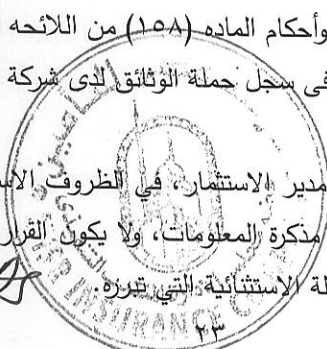 وأحكام الماده (١٥٨) من اللائحه
فى سجل حملة الوثائق لدى شركة
مدير الاستثمار، في الظروف
مذكرة المعلومات، ولا يكون القرار
الاستثنائية التي تبرره.
INSURANCE
٢٣